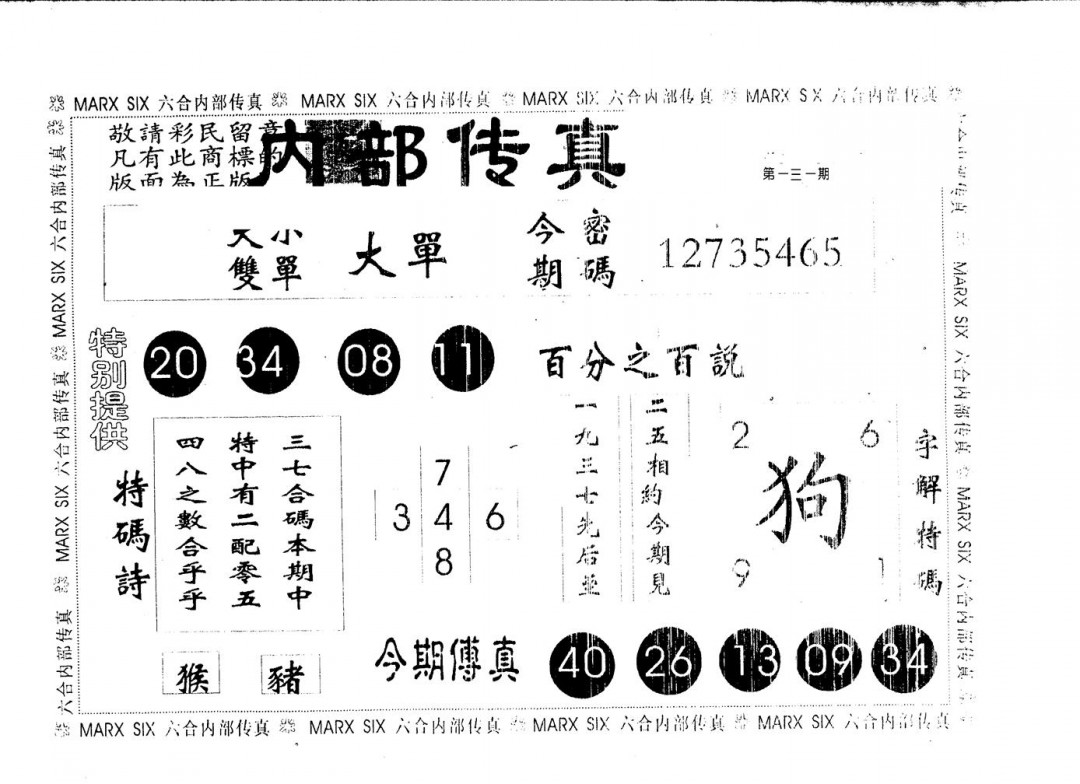 MARX SIX 六合内部传真 MARX SIX 六合内部传真 MARX SIX 六合内部传真 MARX SIX 六合内部传真
敬請彩民留意
凡有此商標的
版面為正版
内部传真
第一三一期
大小
雙單
大單
今期
密碼
12735465
特别提供
20 34 08 11
百分之百説
特碼詩
三七合碼本期中
特中有二配零五
四八之數合乎乎
7
3 4 6
8
二五相約今期見
一九三七先后並
2 6
狗
9 1
字解特碼
猴 豬
今期傳真
40 26 13 09 34
MARX SIX 六合内部传真 MARX SIX 六合内部传真 MARX SIX 六合内部传真 MARX SIX 六合内部传真
六合内部传真 MARX SIX 六合内部传真 MARX SIX 六合内部传真
MARX SIX 六合内部传真 MARX SIX 六合内部传真